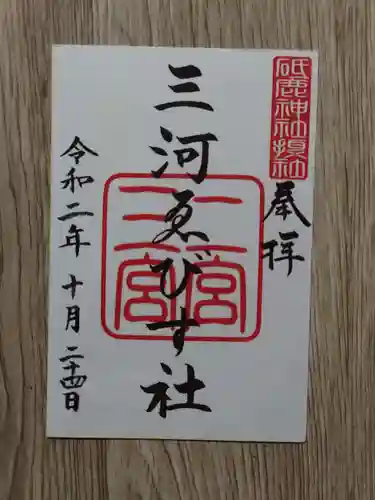 砥鹿神社摂社
奉拝
三河ゑびす社
三河一宮
令和二年十月二十四日